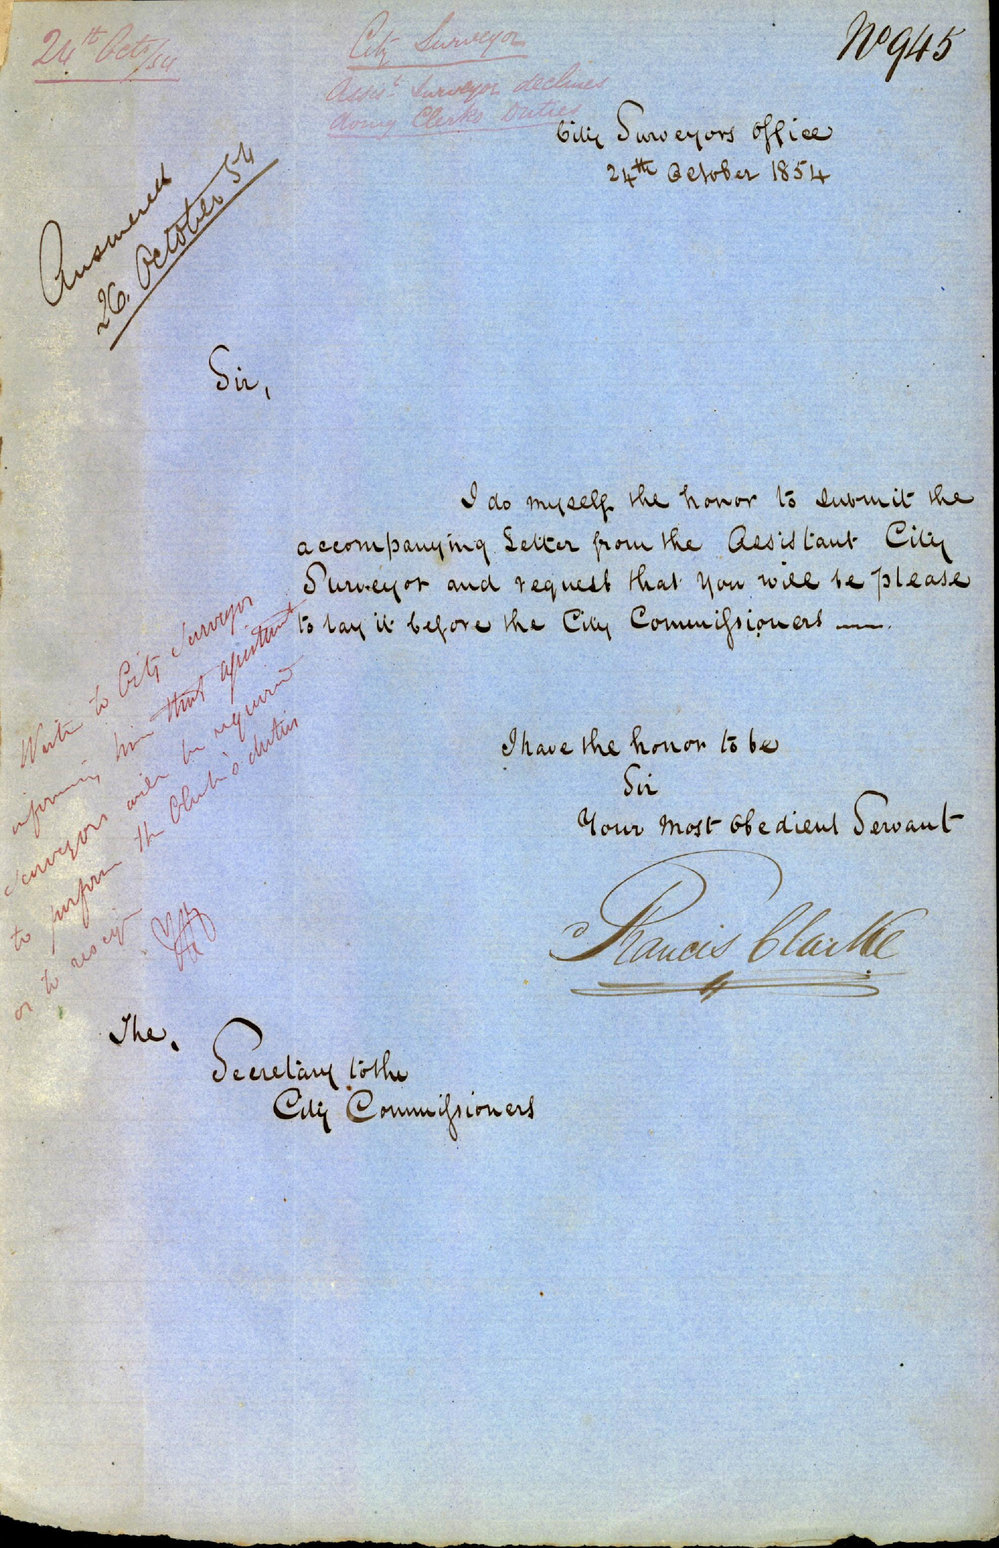 24th Octr/54
City Surveyor
Assist Surveyor declines
doing Clerks Duties
No 945
City Surveyors Office
24th October 1854
Answered
26. October 54
Sir,
I do myself the honor to submit the
accompanying Letter from the Assistant City
Surveyor and request that you will be please
to lay it before the City Commissioners —
Write to City Surveyor
informing him that assistant
Surveyors will be required
to perform the Clerk's duties
or to resign
I have the honor to be
Sir
Your Most Obedient Servant
Francis Clarke
The,
Secretary to the
City Commissioners